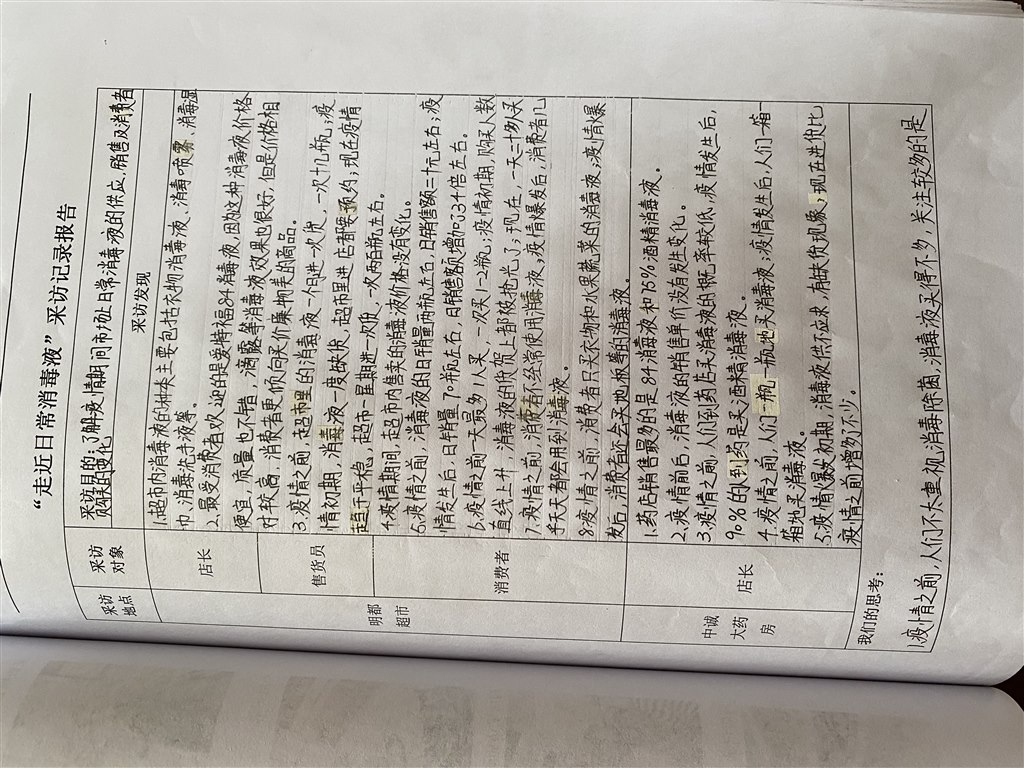 “走近日常消毒液”采访记录报告
采访地点
采访对象
采访目的：了解疫情期间市场上日常消毒液的供应，销售及消费者购买的变化
采访发现
明都超市
店长
1.超市内消毒液的种类主要包括衣物消毒液、消毒喷雾、消毒湿
巾、消毒洗手液等。
2.最受消费者欢迎的是爱特福84消毒液，因为这种消毒液价格
便宜，质量也不错。滴露等消毒液效果也很好，但是价格相
对较高，消费者更倾向买价廉物美的商品。
售货员
3.疫情之前，超市里的消毒液一个月进一次货，一次十几瓶；疫
情初期，消毒液一度缺货，超市里进店都要预约；现在疫情
趋于平稳，超市一星期进一次货，一次两百瓶左右。
消费者
4.疫情期间，超市内售卖的消毒液价格没有变化。
5.疫情之前，消毒液的日销量两瓶左右，日销售额二十元左右；疫
情发生后，日销量70瓶左右，日销售额增加了34倍左右。
6.疫情之前一天最多1人买，一次买1-2瓶；疫情初期，购买人数
直线上升，消毒液的货架上都被抢光了；现在，一天二十多人买
7.疫情之前，消费者不经常使用消毒液，疫情爆发后，消费者几
乎天天都会用到消毒液。
8.疫情之前，消费者只买衣物和水果蔬菜的消毒液；疫情爆
发后，消费者还会买地板等的消毒液。
中诚大药房
店长
1.药店销售最多的是84消毒液和75%酒精消毒液。
2.疫情前后，消毒液的销售单价没有发生变化。
3.疫情之前，人们到药店买消毒液的概率较低，疫情发生后，
90%的到药是买酒精消毒液。
4.疫情之前，人们一瓶一瓶地买消毒液；疫情发生后，人们一箱一
箱地买消毒液。
5.疫情爆发初期，消毒液供不应求，有缺货现象；现在进货比
疫情之前增加不少。
我们的思考：
1.疫情之前，人们不太重视消毒除菌，消毒液买得不多，关注较多的是